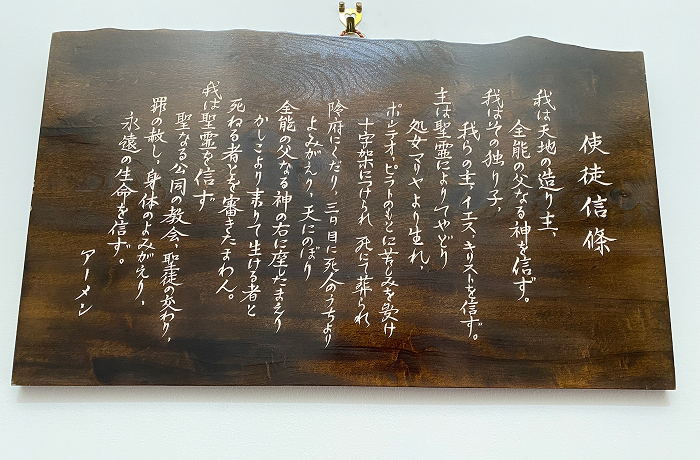 使徒信條
我は天地の造り主、
全能の父なる神を信ず。
我はその独り子、
我らの主、イエス、キリストを信ず。
主は聖霊によりてやどり
処女マリヤより生れ、
ポンテオ、ピラトのもとに苦しみを受け
十字架につけられ 死にて葬られ
陰府にくだり 三日目に死人のうちより
よみがえり、天にのぼり
全能の父なる神の右に座したまえり
かしこより来りて生ける者と
死ねる者とを審きたまわん。
我は聖霊を信ず
聖なる公同の教会、聖徒の交わり、
罪の赦し、身体のよみがえり、
永遠の生命を信ず。
アーメン